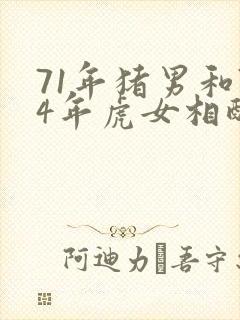 71年猪男和
4年虎女相
阿迪力 吾守